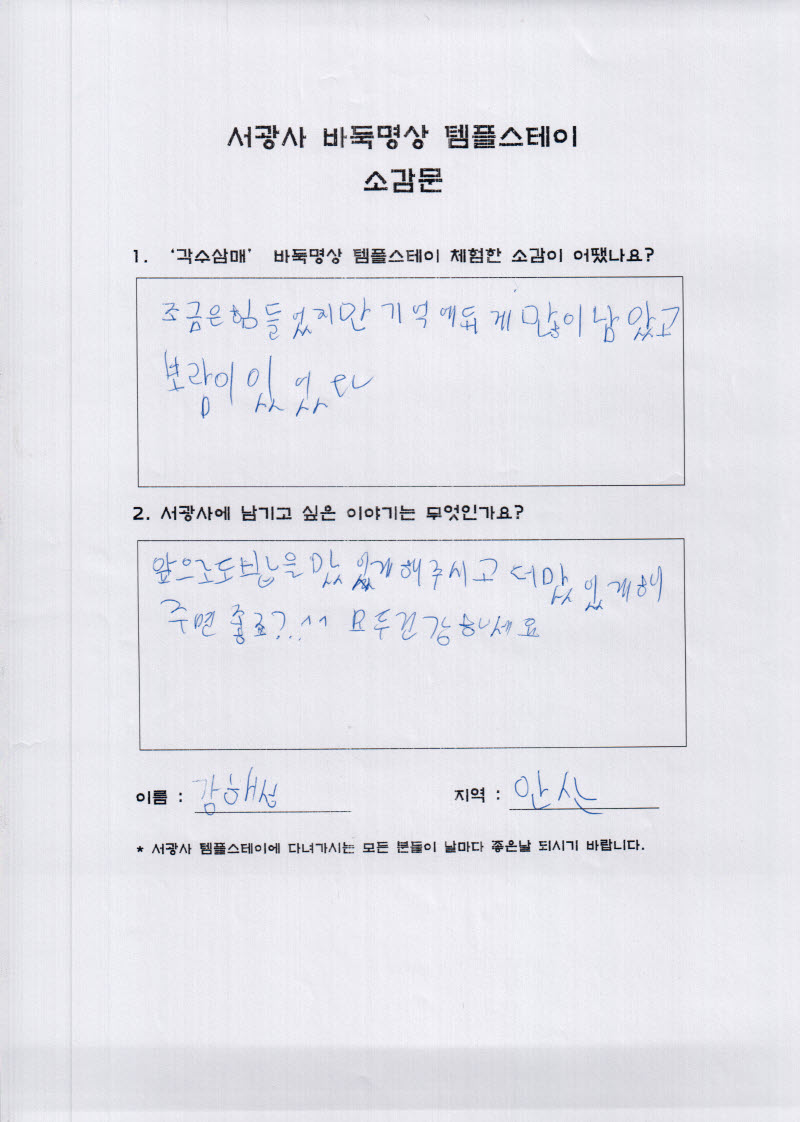 서광사 바둑명상 템플스테이
소감문
1. ‘각수삼매’ 바둑명상 템플스테이 체험한 소감이 어땠나요?
조금은힘들었지만 기억에되게많이남았고
보람이있었다
2. 서광사에 남기고 싶은 이야기는 무엇인가요?
앞으로도밥을맛있게해주시고 더맛있게해
주면 좋죠?..^^ 모두건강하세요
이름 : 감해성
지역 : 안산
* 서광사 템플스테이에 다녀가시는 모든 분들이 날마다 좋은날 되시기 바랍니다.